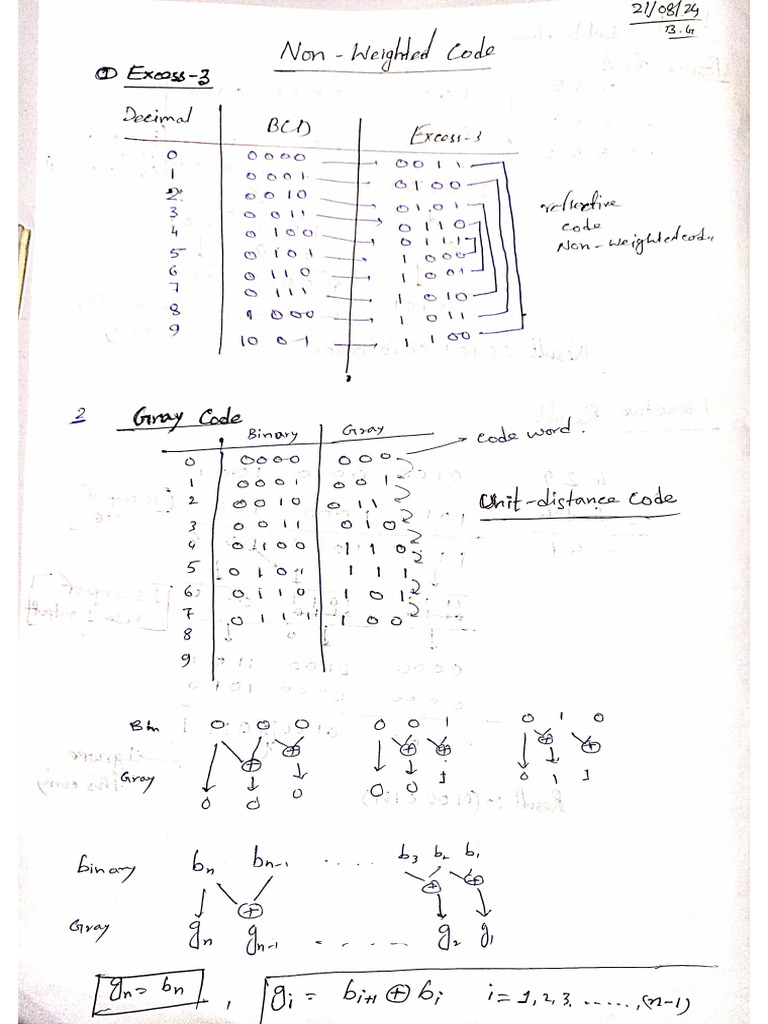 21/08/24
B.G
Non-Weighted Code
① Excess-3
Decimal BCD Excess-3
0 0000 → 0011
1 0001 → 0100
2 0010 → 0101
3 0011 → 0110
4 0100 → 0111
5 0101 → 1000
6 0110 → 1001
7 0111 → 1010
8 1000 → 1011
9 1001 → 1100
reflective
code
Non-weighted code
2 Gray Code
Binary Gray → code word.
0 0000 000
1 0001 001
2 0010 011
3 0011 010
4 0100 110
5 0101 111
6 0110 101
7 0111 100
8
9
Unit-distance code
Bin 0 0 0 0 0 1 0 1 0
⊕ ⊕ ⊕ ⊕ ⊕ ⊕
Gray 0 0 0 0 0 1 0 1 1
binary bn bn-1 ..... b3 b2 b1
⊕ ⊕ ⊕
Gray gn gn-1 ...... g2 g1
gn = bn , gi = bi+1 ⊕ bi i = 1,2,3......,(n-1)